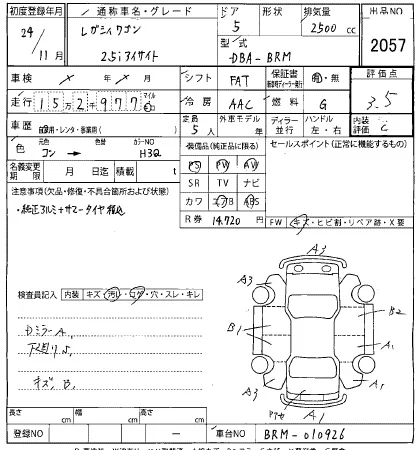 初度登録年月 通称車名・グレード ドア 形状 排気量 出品NO
24/11月 レガシィワゴン 2.5iアイサイト 5 2500cc 2057
型式 DBA-BRM
車検 シフト FAT 保証書 有・無 評価点 3.5
走行 152977 マイル 冷房 AAC 燃料 G
車歴 自家用・レンタ・事業用( ) 定員 5人 外車モデル 年 ディラー 並行 ハンドル 左・右 内装評価 C
色 元色 コン → 色替 カラーNO H3Q 装備品(純正品に限る) セールスポイント(正常に機能するもの)
名義変更期限 月 日迄 積載 t PS PW AW
注意事項(欠品・修復・不具合箇所および状態) SR TV ナビ
・純正アルミ+サマータイヤ積込 カワ エアB ABS
R券 14,720 FW キズ・ヒビ割・リペア跡・X要
検査員記入 内装 キズ・汚れ・コゲ・穴・スレ・キレ
DミラーA、
下廻りS、
キズ、B、
A3
A3 A3
B1 B2
A1
A1 A1
長さ cm 幅 cm 高さ cm
登録NO — 車台NO BRM-010926